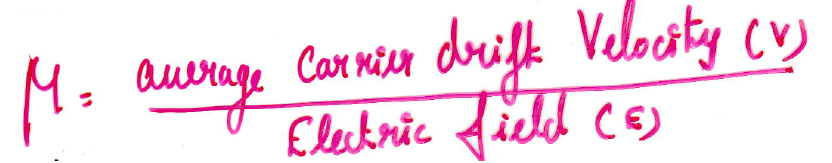 μ = average Carrier drift Velocity (V)
Electric field (E)